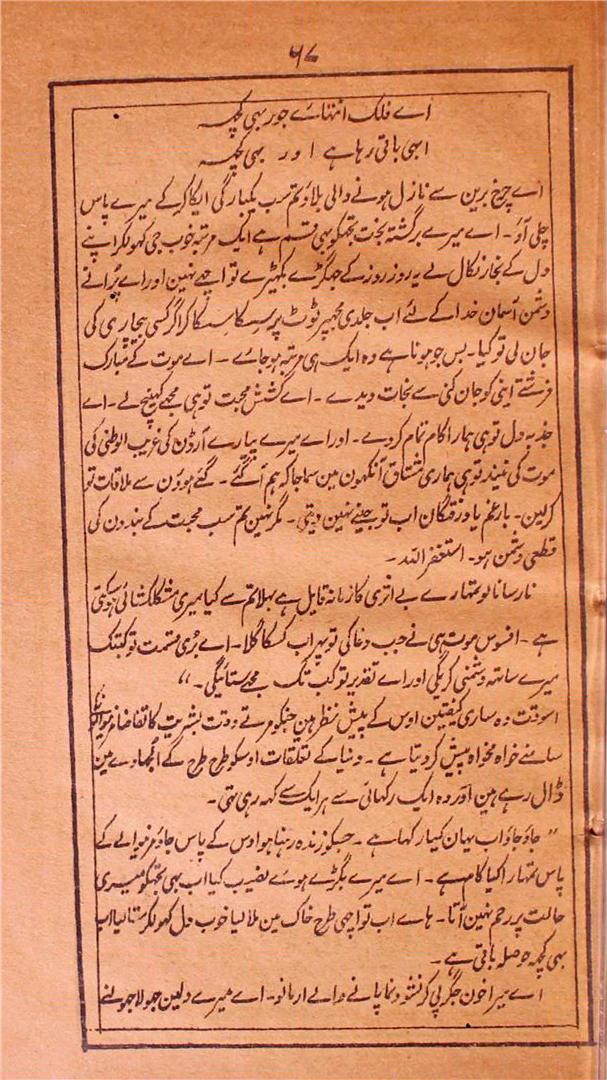 ۵۶
اے فلک انتہائے جور بہی کچہہ
ابہی باقی رہا ہے اور بہی کچہہ
اے چرخ برین سے نازل ہونے والی بلاؤ تم سب یکبارگی ایکا کرکے میرے پاس
چلی آؤ۔ اے میرے برگشتہ بخت تجہکو بہی قسم ہے ایک مرتبہ خوب جی کہولکر اپنے
دل کے بخار نکال لے یہ روز روز کے جہگڑے بکہیڑے تو اچہے نہین اور اے پرانے
دشمن آسمان خدا کے لئے اب جلدی مجہپر ٹوٹ پڑ سسکا سسکا کر اگر کسی بیچاری کی
جان لی تو کیا۔ بس جو ہونا ہے وہ ایک ہی مرتبہ ہو جائے۔ اے موت کے مبارک
فرشتے اپنی کو جان کنی سے نجات دیدے۔ اے کشش محبت تو ہی مجہے کہینچ لے۔ اے
جذبہ دل تو ہی ہمارا کام تمام کردے۔ اور اے میرے پیارے آرڈن کی غریب الوطنی کی
موت کی نیند تو ہی ہماری مشتاق آنکہون مین سما جا کہ ہم آگئے۔ گئے ہوؤن سے ملاقات تو
کرلین۔ بار غم یاد رفتگان اب تو جینے نہین دیتی۔ مگر نہین تم سب محبت کے بندون کی
قطعی دشمن ہو۔ استغفر اللہ۔
نارسا نالو تمہارے بے اثری کا زمانہ قایل ہے بہلا تم سے کیا میری مشکلکشائی ہوسکتی
ہے۔ افسوس موت ہی نے جب دغا کی تو پہر اب کسکا گلا۔ اے بری قسمت تو کبتک
میرے ساتہہ دشمنی کریگی اور اے تقدیر تو کب تک مجہے ستائیگی۔“
اسوقت وہ ساری کیفیتین اوس کے پیش نظر ہین جنکو مرتے وقت بشریت کا تقاضا
سامنے خواہ مخواہ پیش کر دیتا ہے۔ دنیا کے تعلقات اوسکو طرح طرح کے الجہاوے مین
ڈال رہے ہین اور وہ ایک رکہائی سے ہر ایک سے کہہ رہی تہی۔
”جاؤ جاؤ اب یہان کیا رکہا ہے۔ جسکو زندہ رہنا ہو اوس کے پاس جاؤ مرنیوالے کے
پاس تمہارا کیا کام ہے۔ اے میرے بگڑے ہوئے نصیب کیا اب بہی تجہکو میری
حالت پر رحم نہین آتا۔ ہاے اب تو اچہی طرح خاک مین ملا لیا خوب دل کہولکر ستا لیا اب
بہی کچہہ حوصلہ باقی ہے۔
اے میرا خون جگر پی کر نشو و نما پانے والے ارمانو۔ اے میرے دلمین جہولا جہولنے